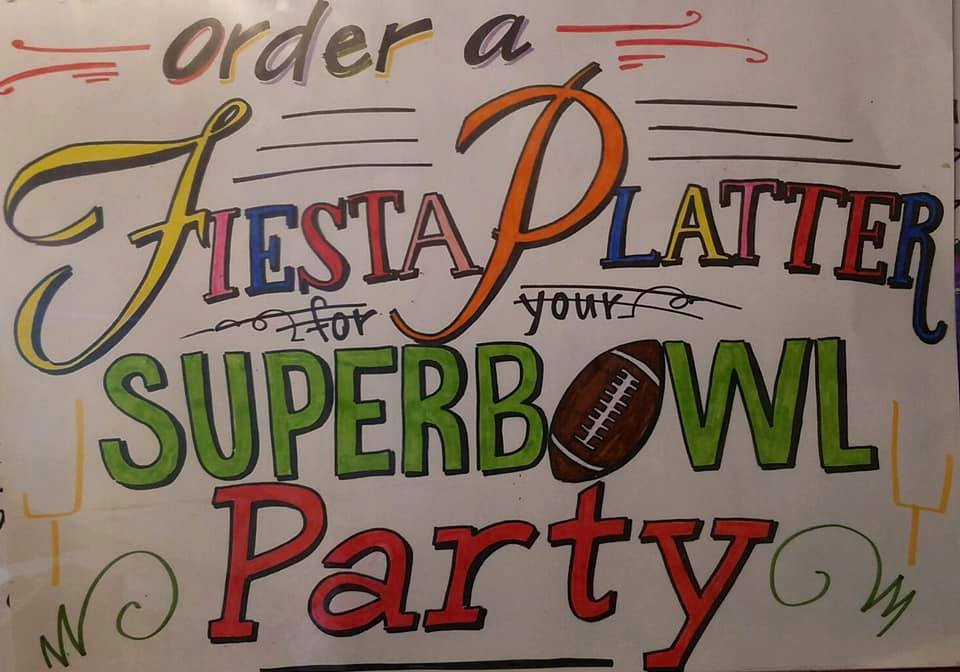 order a
FIESTA PLATTER
for your
SUPERBOWL
Party